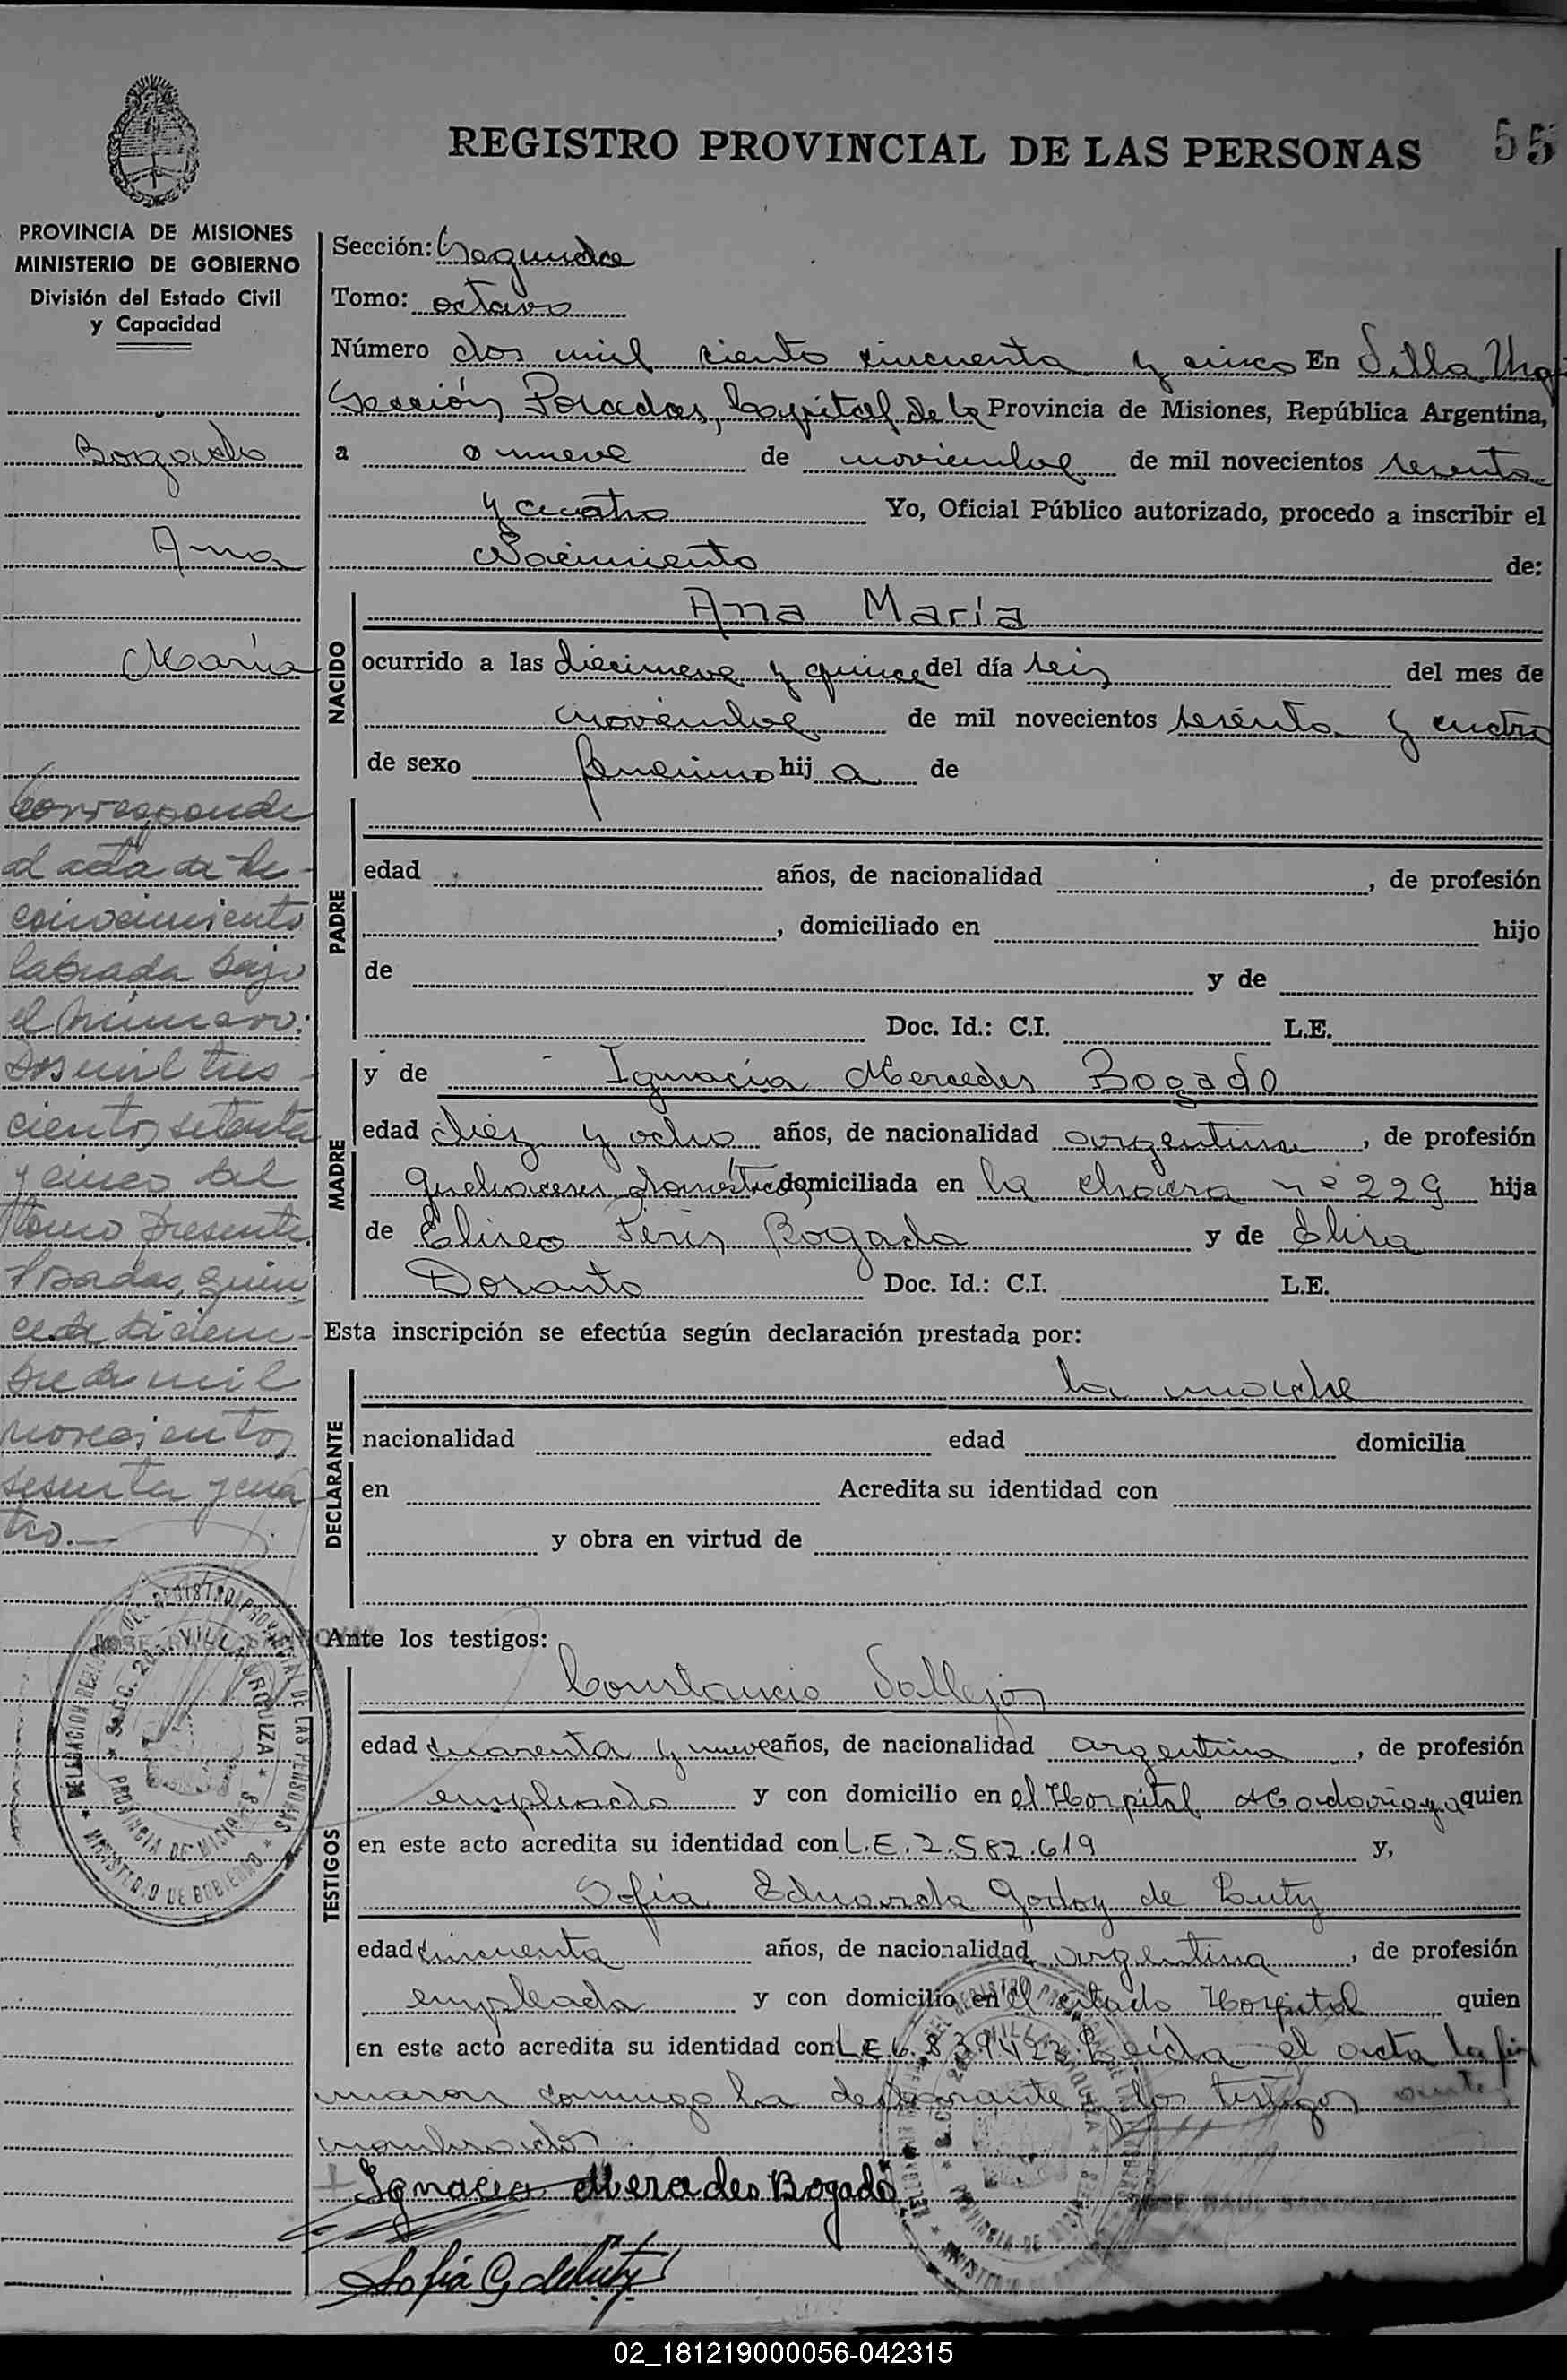 REGISTRO PROVINCIAL DE LAS PERSONAS 55
PROVINCIA DE MISIONES
MINISTERIO DE GOBIERNO
División del Estado Civil
y Capacidad
Bogado
Ana
María
Corresponde
al acta de Re-
conocimiento
labrada bajo
el número:
Dos mil tres-
cientos setenta
y cinco del
tomo presente.
Posadas, quin-
ce de diciem-
bre de mil
novecientos
sesenta y cua
tro.-
Sección: Segunda
Tomo: octavo
Número dos mil ciento cincuenta y cinco En Villa Urq
Sección Posadas, Capital de la Provincia de Misiones, República Argentina,
a nueve de noviembre de mil novecientos sesenta
y cuatro Yo, Oficial Público autorizado, procedo a inscribir el
Nacimiento de:
NACIDO
Ana María
ocurrido a las diecinueve y quince del día seis del mes de
noviembre de mil novecientos sesenta y cuatro
de sexo femenino hija de
PADRE
edad años, de nacionalidad , de profesión
, domiciliado en hijo
de y de
Doc. Id.: C.I. L.E.
MADRE
y de Ignacia Mercedes Bogado
edad diez y ocho años, de nacionalidad argentina, de profesión
Quehaceres domésticos domiciliada en la chacra nº 229 hija
de Eliseo Bogado y de Elisa
Doc. Id.: C.I. L.E.
Esta inscripción se efectúa según declaración prestada por:
DECLARANTE
la madre
nacionalidad edad domicilia
en Acredita su identidad con
y obra en virtud de
Ante los testigos:
TESTIGOS
Constancio Vallejos
edad cuarenta y nueve años, de nacionalidad argentina, de profesión
empleado y con domicilio en el Hospital Madariaga quien
en este acto acredita su identidad con L.E. 2.582.619 y,
Sofía Eduarda Godoy de
edad cincuenta años, de nacionalidad argentina, de profesión
empleada y con domicilio en el citado Hospital quien
en este acto acredita su identidad con L.E. 6.839423. Leída el acta la fir
maron conmigo la declarante y los testigos ante
nombrados.
Ignacia Mercedes Bogado
Sofía G de
DELEGACION DEL REGISTRO PROVINCIAL DE LAS PERSONAS
SECC. 2da. VILLA URQUIZA
PROVINCIA DE MISIONES
MINISTERIO DE GOBIERNO
02_181219000056-042315